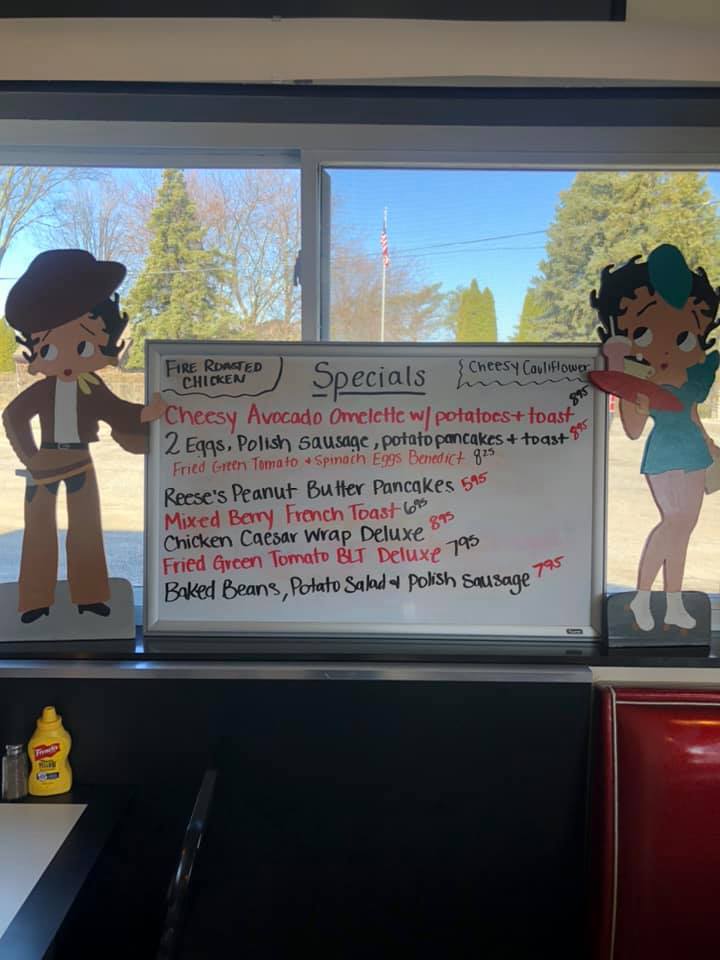 FIRE ROASTED
CHICKEN
Specials
Cheesy Cauliflower
Cheesy Avocado Omelette w/ potatoes + toast 895
2 Eggs, Polish Sausage, potato pancakes + toast 895
Fried Green Tomato + Spinach Eggs Benedict 825
Reese's Peanut Butter Pancakes 595
Mixed Berry French Toast 695
Chicken Caesar Wrap Deluxe 895
Fried Green Tomato BLT Deluxe 795
Baked Beans, Potato Salad + Polish Sausage 795
French's